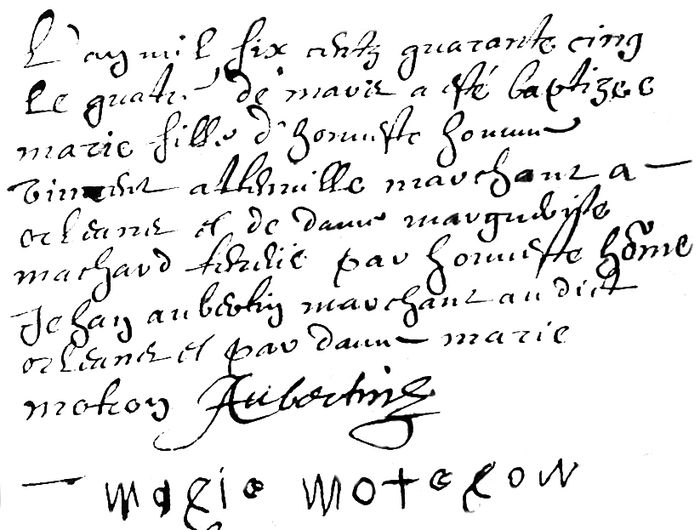 L'an mil six centz quarante cinq
le quatr. de mars a esté baptizee
marie fille d'honneste homme
Vincent alleaulme marchant a
orleans et de dame marguerite
machard tenue par honneste hõme
Jehan aubertin marchant audict
orleans et par dame marie
moton Aubertin
marie moteron